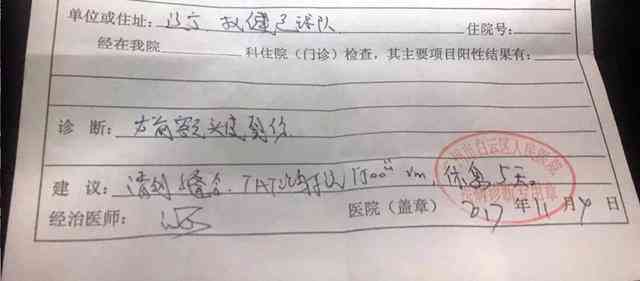 单位或住址：辽宁 权健足球队 住院号：
经在我院 科住院（门诊）检查，其主要项目阳性结果有：
诊 断：右前额头皮裂伤
建 议：清创缝合、TAT 1500 im，休息5天。
经治医师： 医院（盖章） 2017 年 11 月 4 日
白云区人民医院